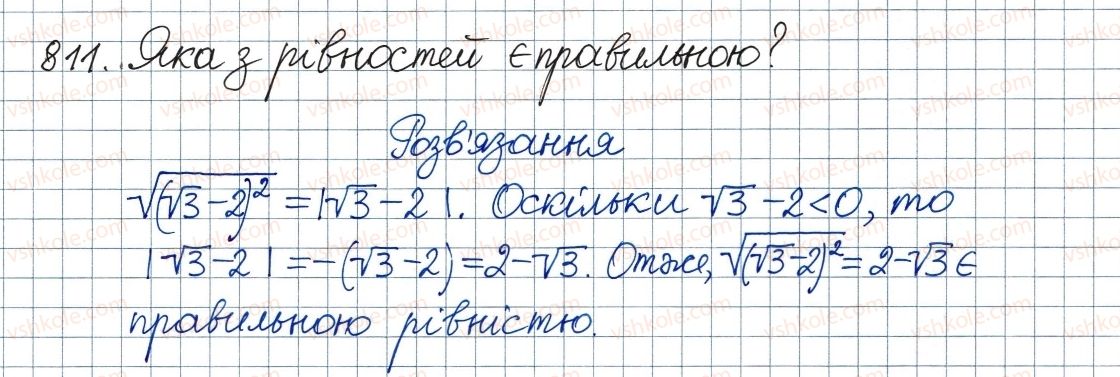 811. Яка з рівностей є правильною?
Розв'язання
√((√3-2)²) = |√3-2|. Оскільки √3-2<0, то
|√3-2| = -(√3-2) = 2-√3. Отже, √((√3-2)²) = 2-√3 є
правильною рівністю.